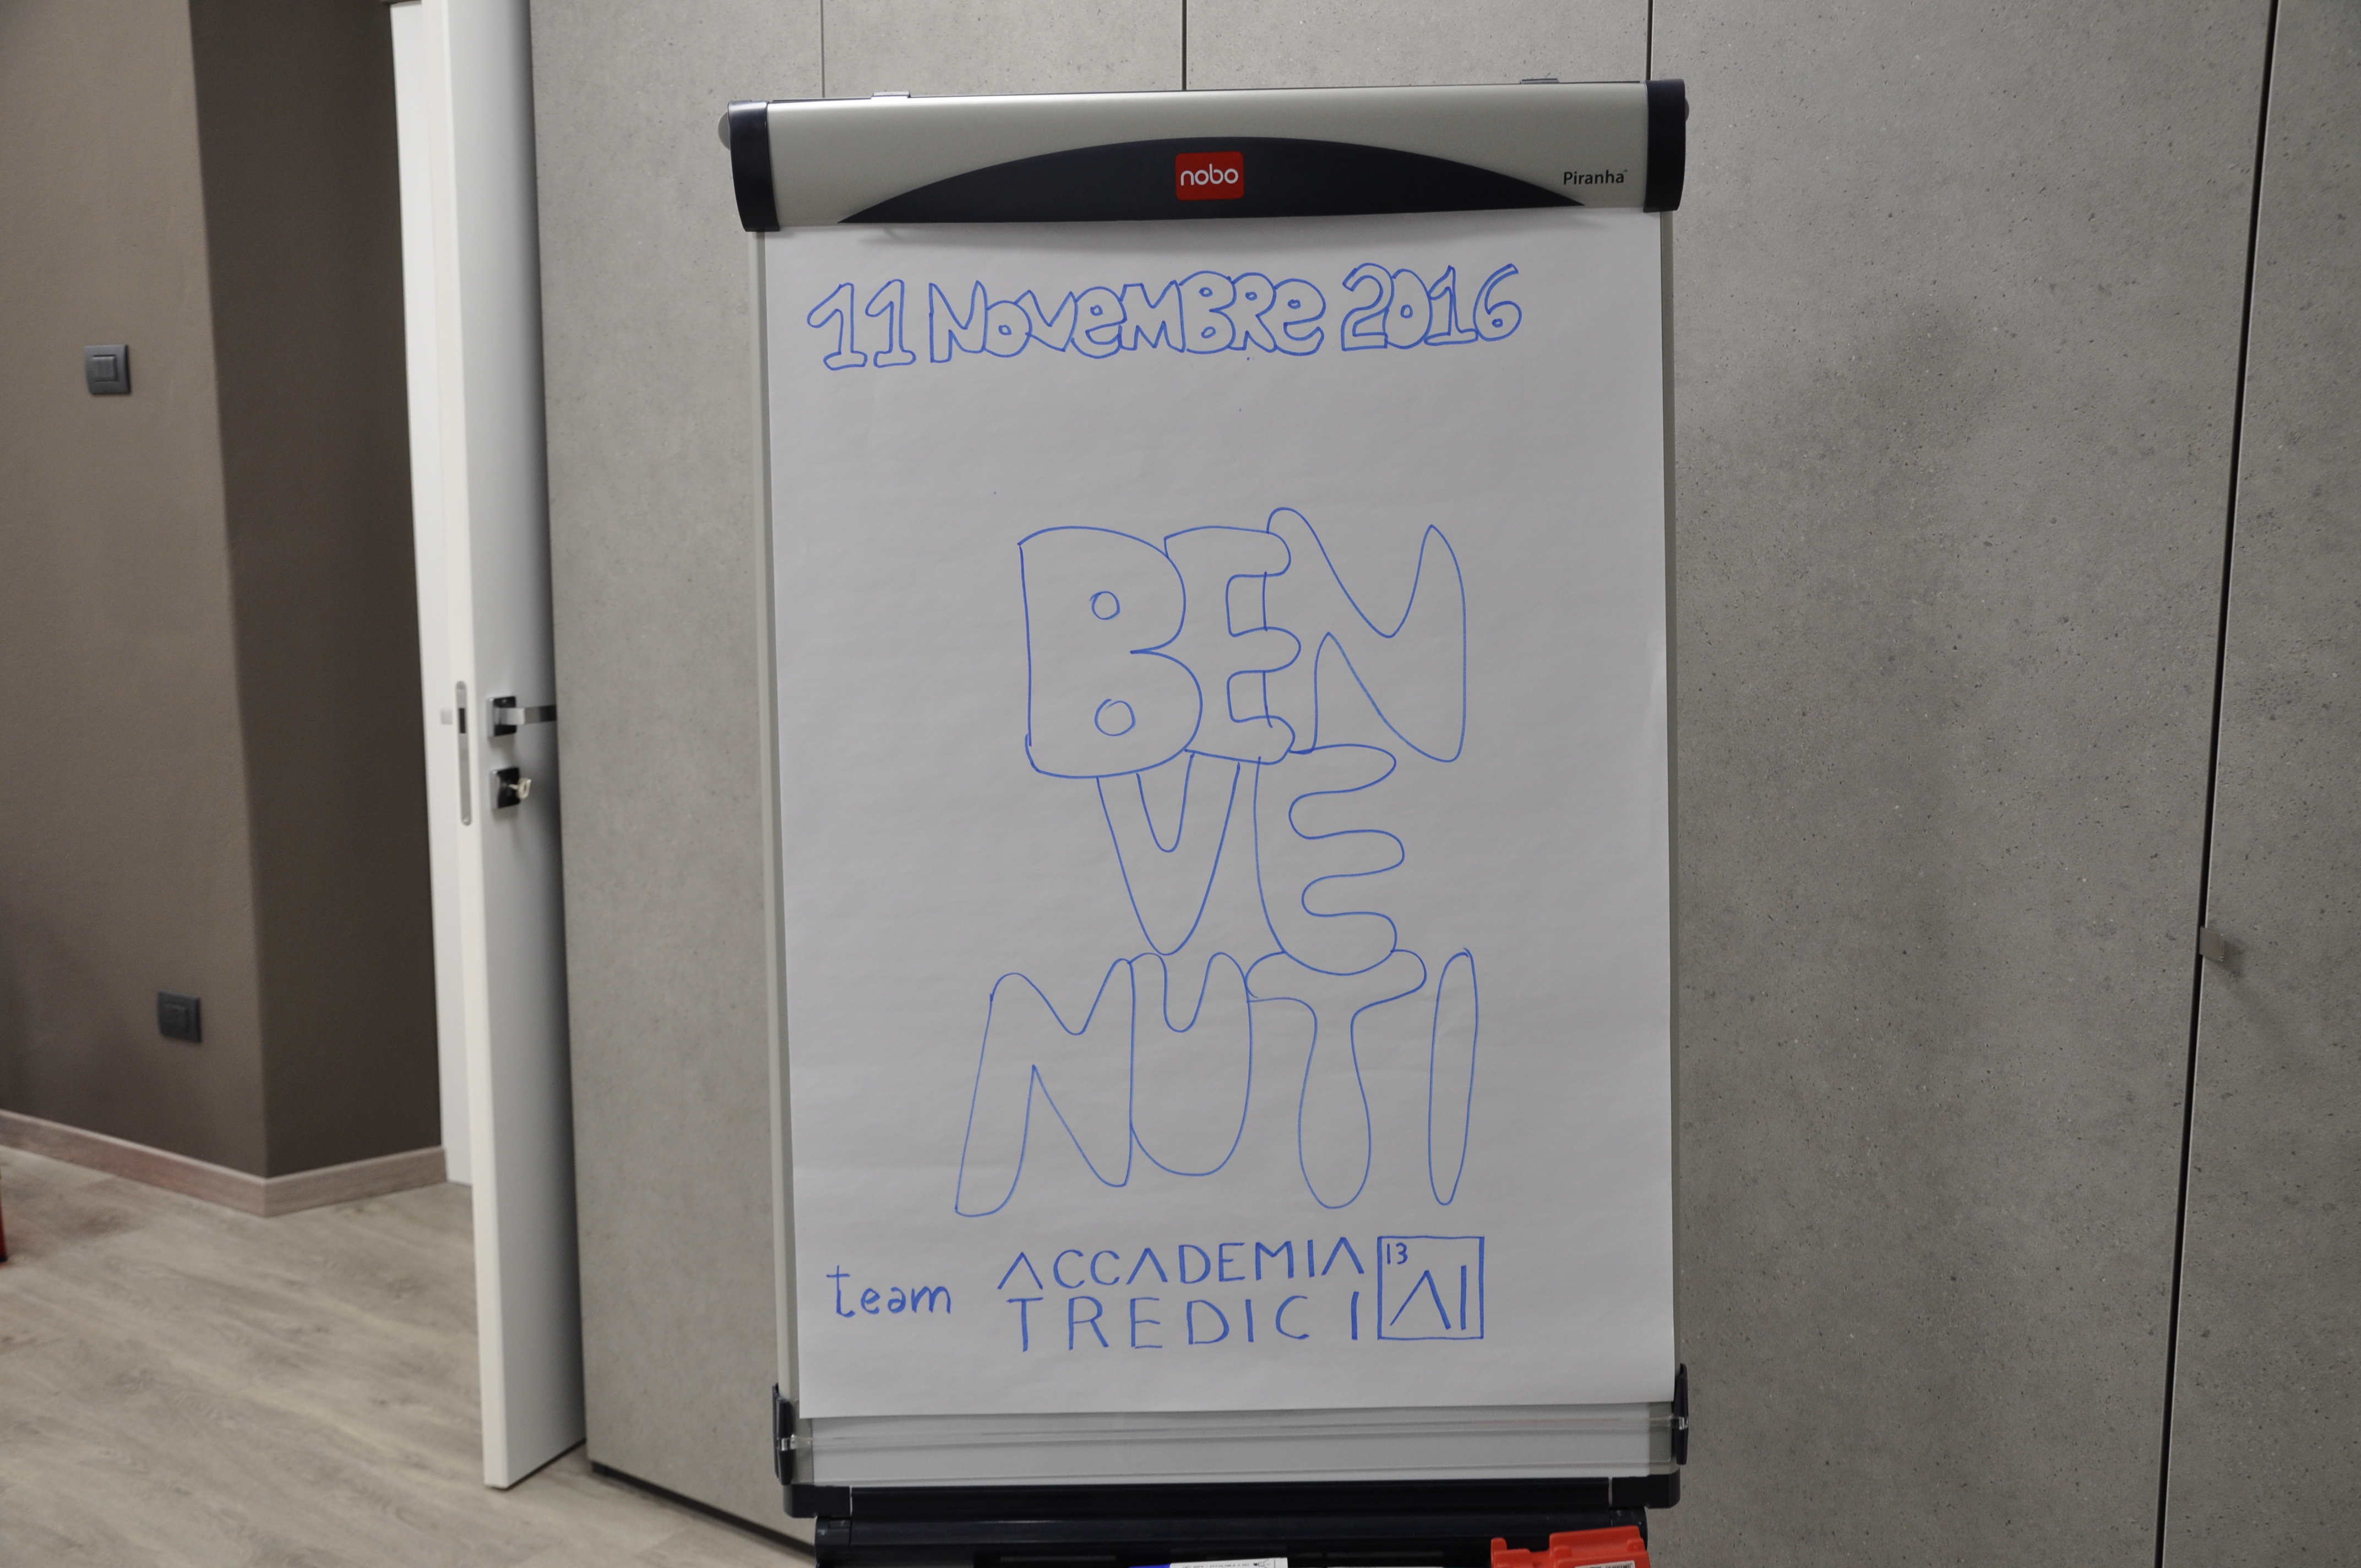 nobo
Piranha
11 NoveMBRe 2016
BEN
VE
NUTI
team ACCADEMIA
TREDICI
13
AI